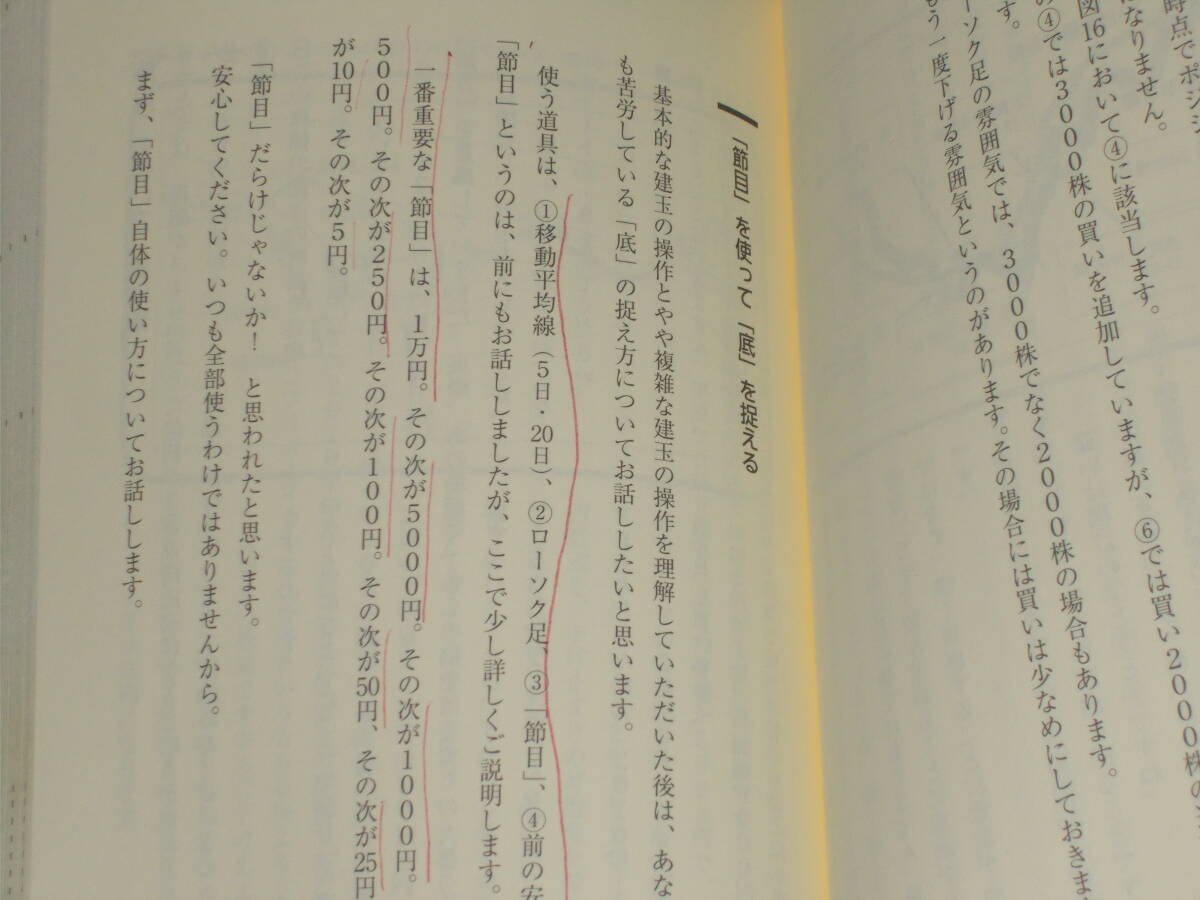 時点でポジシ
になりません。
図16において④に該当します。
の④では3000株の買いを追加していますが、⑥では買い2000株の
す。
ーソク足の雰囲気では、3000株でなく2000株の場合もあります。
もう一度下げる雰囲気というのがあります。その場合には買いは少なめにしておきま
「節目」を使って「底」を捉える
基本的な建玉の操作とやや複雑な建玉の操作を理解していただいた後は、あな
も苦労している「底」の捉え方についてお話ししたいと思います。
使う道具は、①移動平均線（5日・20日）、②ローソク足、③「節目」、④前の安
「節目」というのは、前にもお話ししましたが、ここで少し詳しくご説明します。
一番重要な「節目」は、1万円。その次が5000円。その次が1000円。
500円。その次が250円。その次が100円。その次が50円、その次が25円
が10円。その次が5円。
「節目」だらけじゃないか！　と思われたと思います。
安心してください。いつも全部使うわけではありませんから。
まず、「節目」自体の使い方についてお話しします。